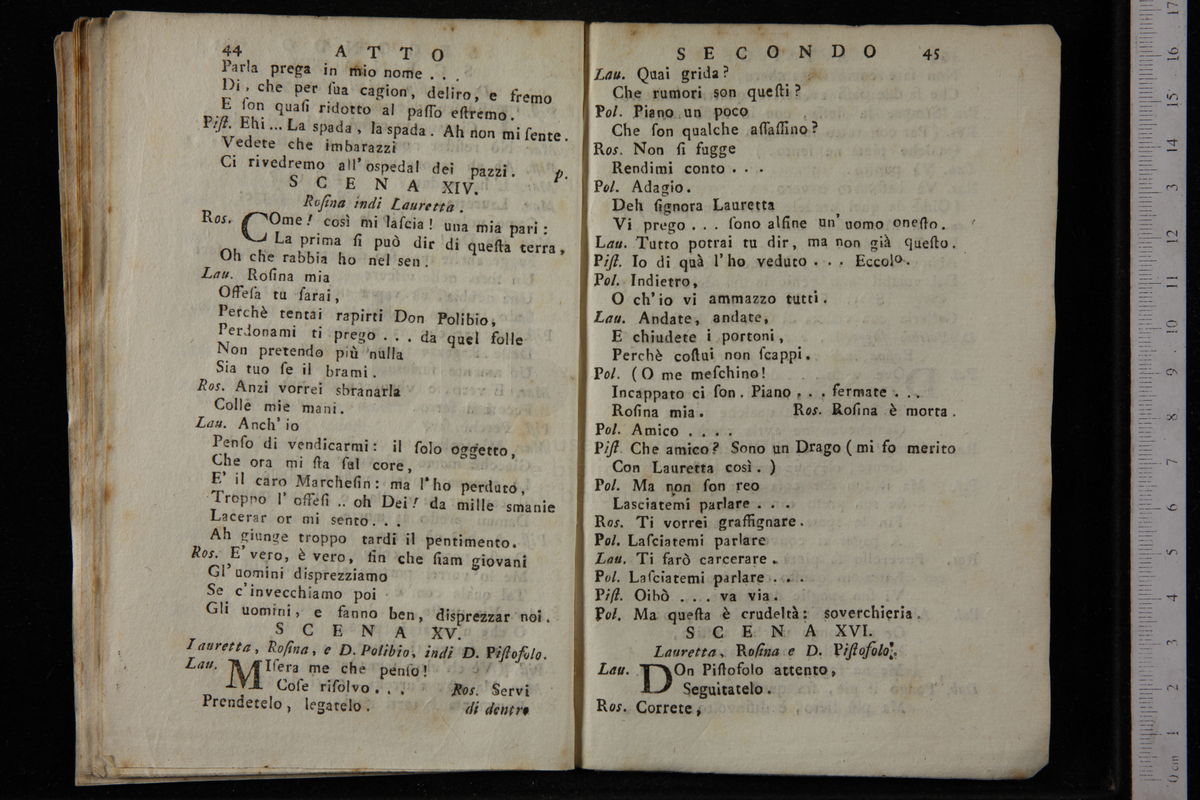 44 A T T O
Parla prega in mio nome . . .
Di, che per ſua cagion, deliro, e fremo
E ſon quaſi ridotto al paſſo eſtremo.
Piſt. Ehi... La spada, la spada. Ah non mi ſente.
Vedete che imbarazzi
Ci rivedremo all' ospedal dei pazzi. p.
S C E N A XIV.
Roſina indi Lauretta.
Ros. COme! così mi laſcia! una mia pari:
La prima ſi può dir di queſta terra,
Oh che rabbia ho nel sen.
Lau. Roſina mia
Offeſa tu ſarai,
Perchè tentai rapirti Don Polibio,
Perdonami ti prego . . . da quel folle
Non pretendo più nulla
Sia tuo ſe il brami.
Ros. Anzi vorrei sbranarla
Colle mie mani.
Lau. Anch' io
Penſo di vendicarmi: il ſolo oggetto,
Che ora mi ſta ſul core,
E' il caro Marcheſin: ma l'ho perduto,
Troppo l' offeſi .. oh Dei! da mille smanie
Lacerar or mi sento . . .
Ah giunge troppo tardi il pentimento.
Ros. E' vero, è vero, ſin che ſiam giovani
Gl'uomini disprezziamo
Se c'invecchiamo poi
Gli uomini, e fanno ben, disprezzar noi.
S C E N A XV.
Lauretta, Roſina, e D. Polibio, indi D. Piſtofolo.
Lau. MIſera me che penſo!
Coſe riſolvo . . . Ros. Servi
Prendetelo, legatelo. di dentro
S E C O N D O 45
Lau. Quai grida?
Che rumori son queſti?
Pol. Piano un poco
Che ſon qualche aſſaſſino?
Ros. Non ſi fugge
Rendimi conto . . .
Pol. Adagio.
Deh ſignora Lauretta
Vi prego . . . ſono alfine un' uomo oneſto.
Lau. Tutto potrai tu dir, ma non già queſto.
Piſt. Io di quà l'ho veduto . . . Eccolo.
Pol. Indietro,
O ch'io vi ammazzo tutti.
Lau. Andate, andate,
E chiudete i portoni,
Perchè coſtui non ſcappi.
Pol. (O me meſchino!
Incappato ci ſon. Piano . . . fermate . . .
Roſina mia. Ros. Roſina è morta.
Pol. Amico . . . .
Piſt. Che amico? Sono un Drago (mi fo merito
Con Lauretta così.)
Pol. Ma non ſon reo
Lasciatemi parlare . . .
Ros. Ti vorrei graffignare.
Pol. Laſciatemi parlare
Lau. Ti farò carcerare.
Pol. Laſciatemi parlare . . .
Piſt. Oibò . . . va via.
Pol. Ma queſta è crudeltà: soverchieria.
S C E N A XVI.
Lauretta, Roſina e D. Piſtofolo.
Lau. DOn Piſtofolo attento,
Seguitatelo.
Ros. Correte,
0 cm 1 2 3 4 5 6 7 8 9 10 11 12 13 14 15 16 17